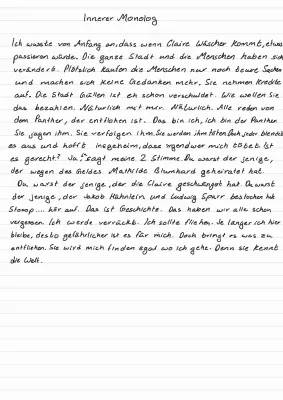 Innerer Monolog
Ich wusste von Anfang an, dass wenn Claire Wäscher kommt, etwas
passieren würde. Die ganze Stadt und die Menschen haben sich
verändert. Plötzlich kaufen die Menschen nur noch teure Sachen
und machen sich keine Gedanken mehr, Sie nehmen Kredite
auf. Die Stadt Güllen ist eh schon verschuldet. Wie wollen sie
das bezahlen. Natürlich mit mir. Natürlich. Alle reden von
dem Panther, der entflohen ist. Das bin ich, ich bin der Panther
Sie jagen ihm. Sie verfolgen ihm. Sie werden ihm töten. Doch jeder blendet
es aus und hofft insgeheim, dass irgendwer mich tötet. Ist
es gerecht? Ja! sagt meine 2 Stimme. Du warst der jenige,
der wegen des Geldes Mathilde Blumhard geheiratet hat.
Du warst der jenige, der die Claire geschwängert hat. Du warst
der jenige, der Jakob Hühnlein und Ludwig Sparr bestochen hat
Stoopp.... hör auf. Das ist Geschichte. Das haben wir alle schon
vergessen. Ich werde verrückt. Ich sollte fliehen. Je länger ich hier
bleibe, desto gefährlicher ist es für mich. Doch bringt es was zu
entfliehen. Sie wird mich finden egal wo ich gehe. Denn sie kennt
die Welt.